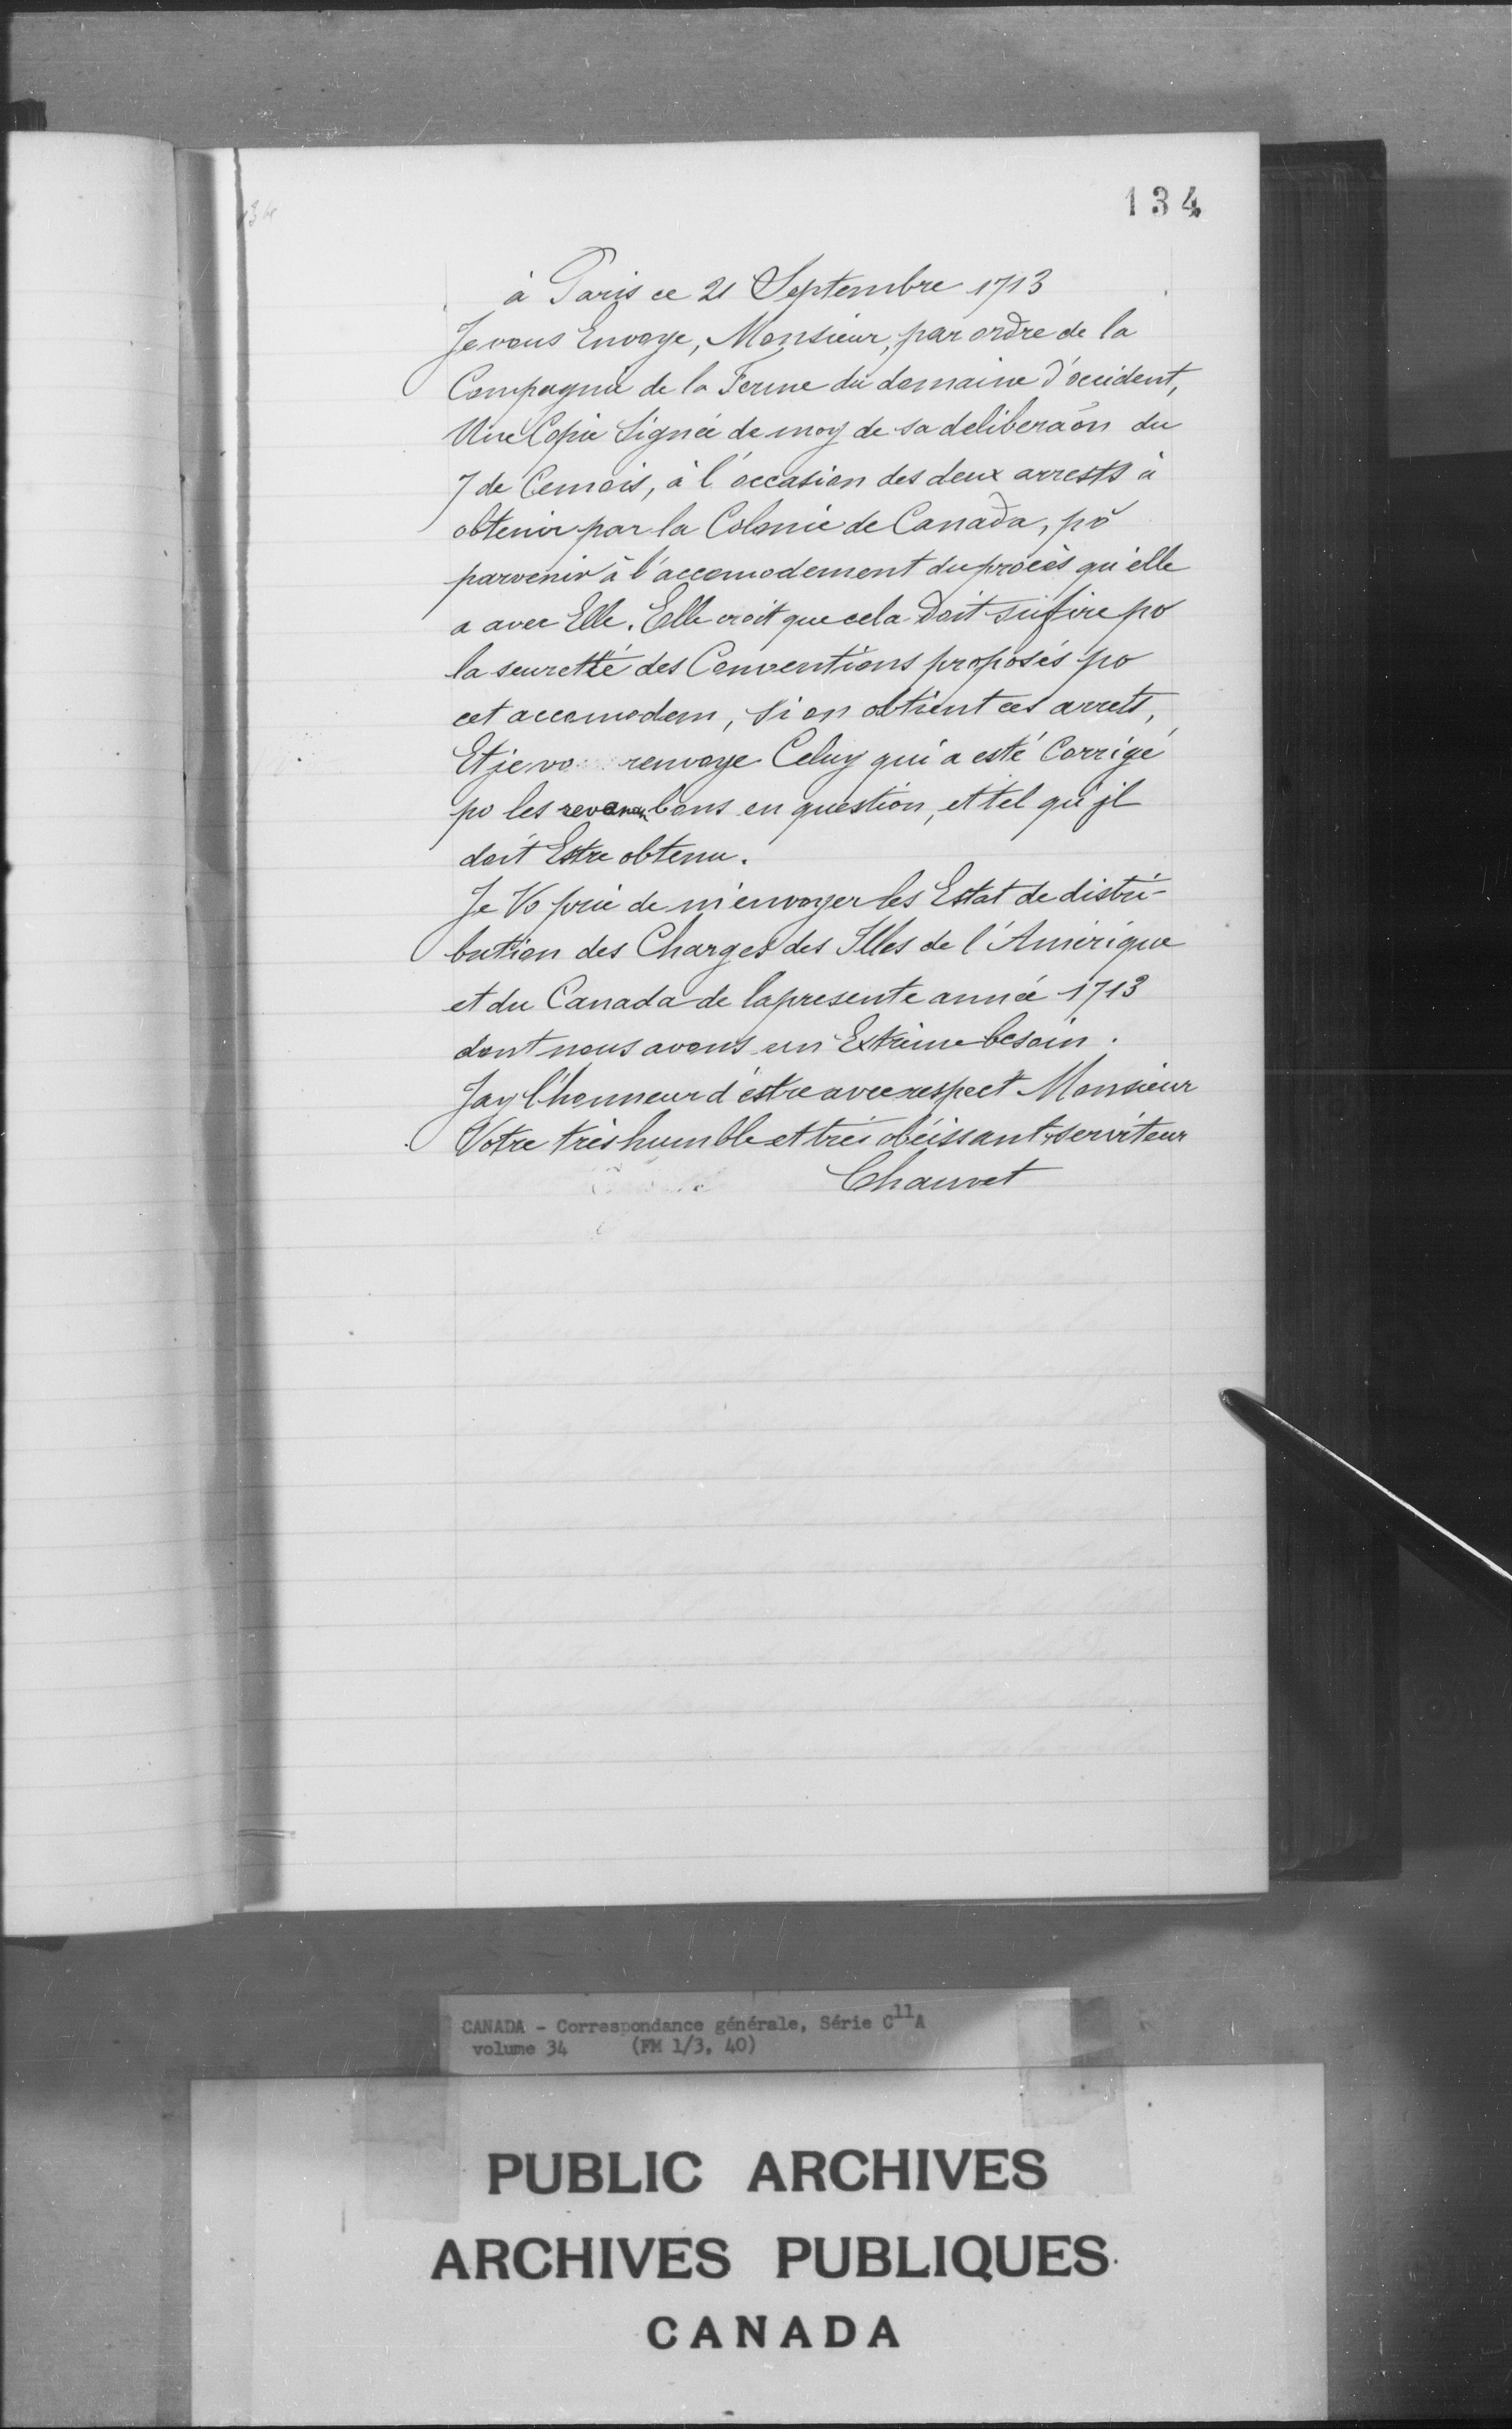 134
à Paris ce 21 Septembre 1713
Je vous Envoye, Monsieur, par ordre de la
Compagnie de la Ferme du domaine d'occident,
Une Copie Signée de moy de sa deliberaōn du
7 de Cemois, à l'occasion des deux arrests à
obtenir par la Colonie de Canada, pō
parvenir à l'accomodement du procès qu'elle
a avec Elle. Elle croit que cela doit sufire po
la seuretté des Conventions proposés po
cet accomodem, si on obtient ces arrets,
Et je vo renvoye Celuy qui a esté Corrigé
po les revenanbons en question, et tel qu'jl
doit Estre obtenu.
Je Vo prie de m'envoyer les Estat de distri-
bution des Charges des Illes de l'Amérique
et du Canada de la presente année 1713
dont nous avons un Extrême besoin.
Jay l'honneur d'estre avec respect Monsieur
Votre très humble et très obéissant serviteur
Chauvet
CANADA - Correspondance générale, Série C11A
volume 34 (FM 1/3, 40)
PUBLIC ARCHIVES
ARCHIVES PUBLIQUES
CANADA